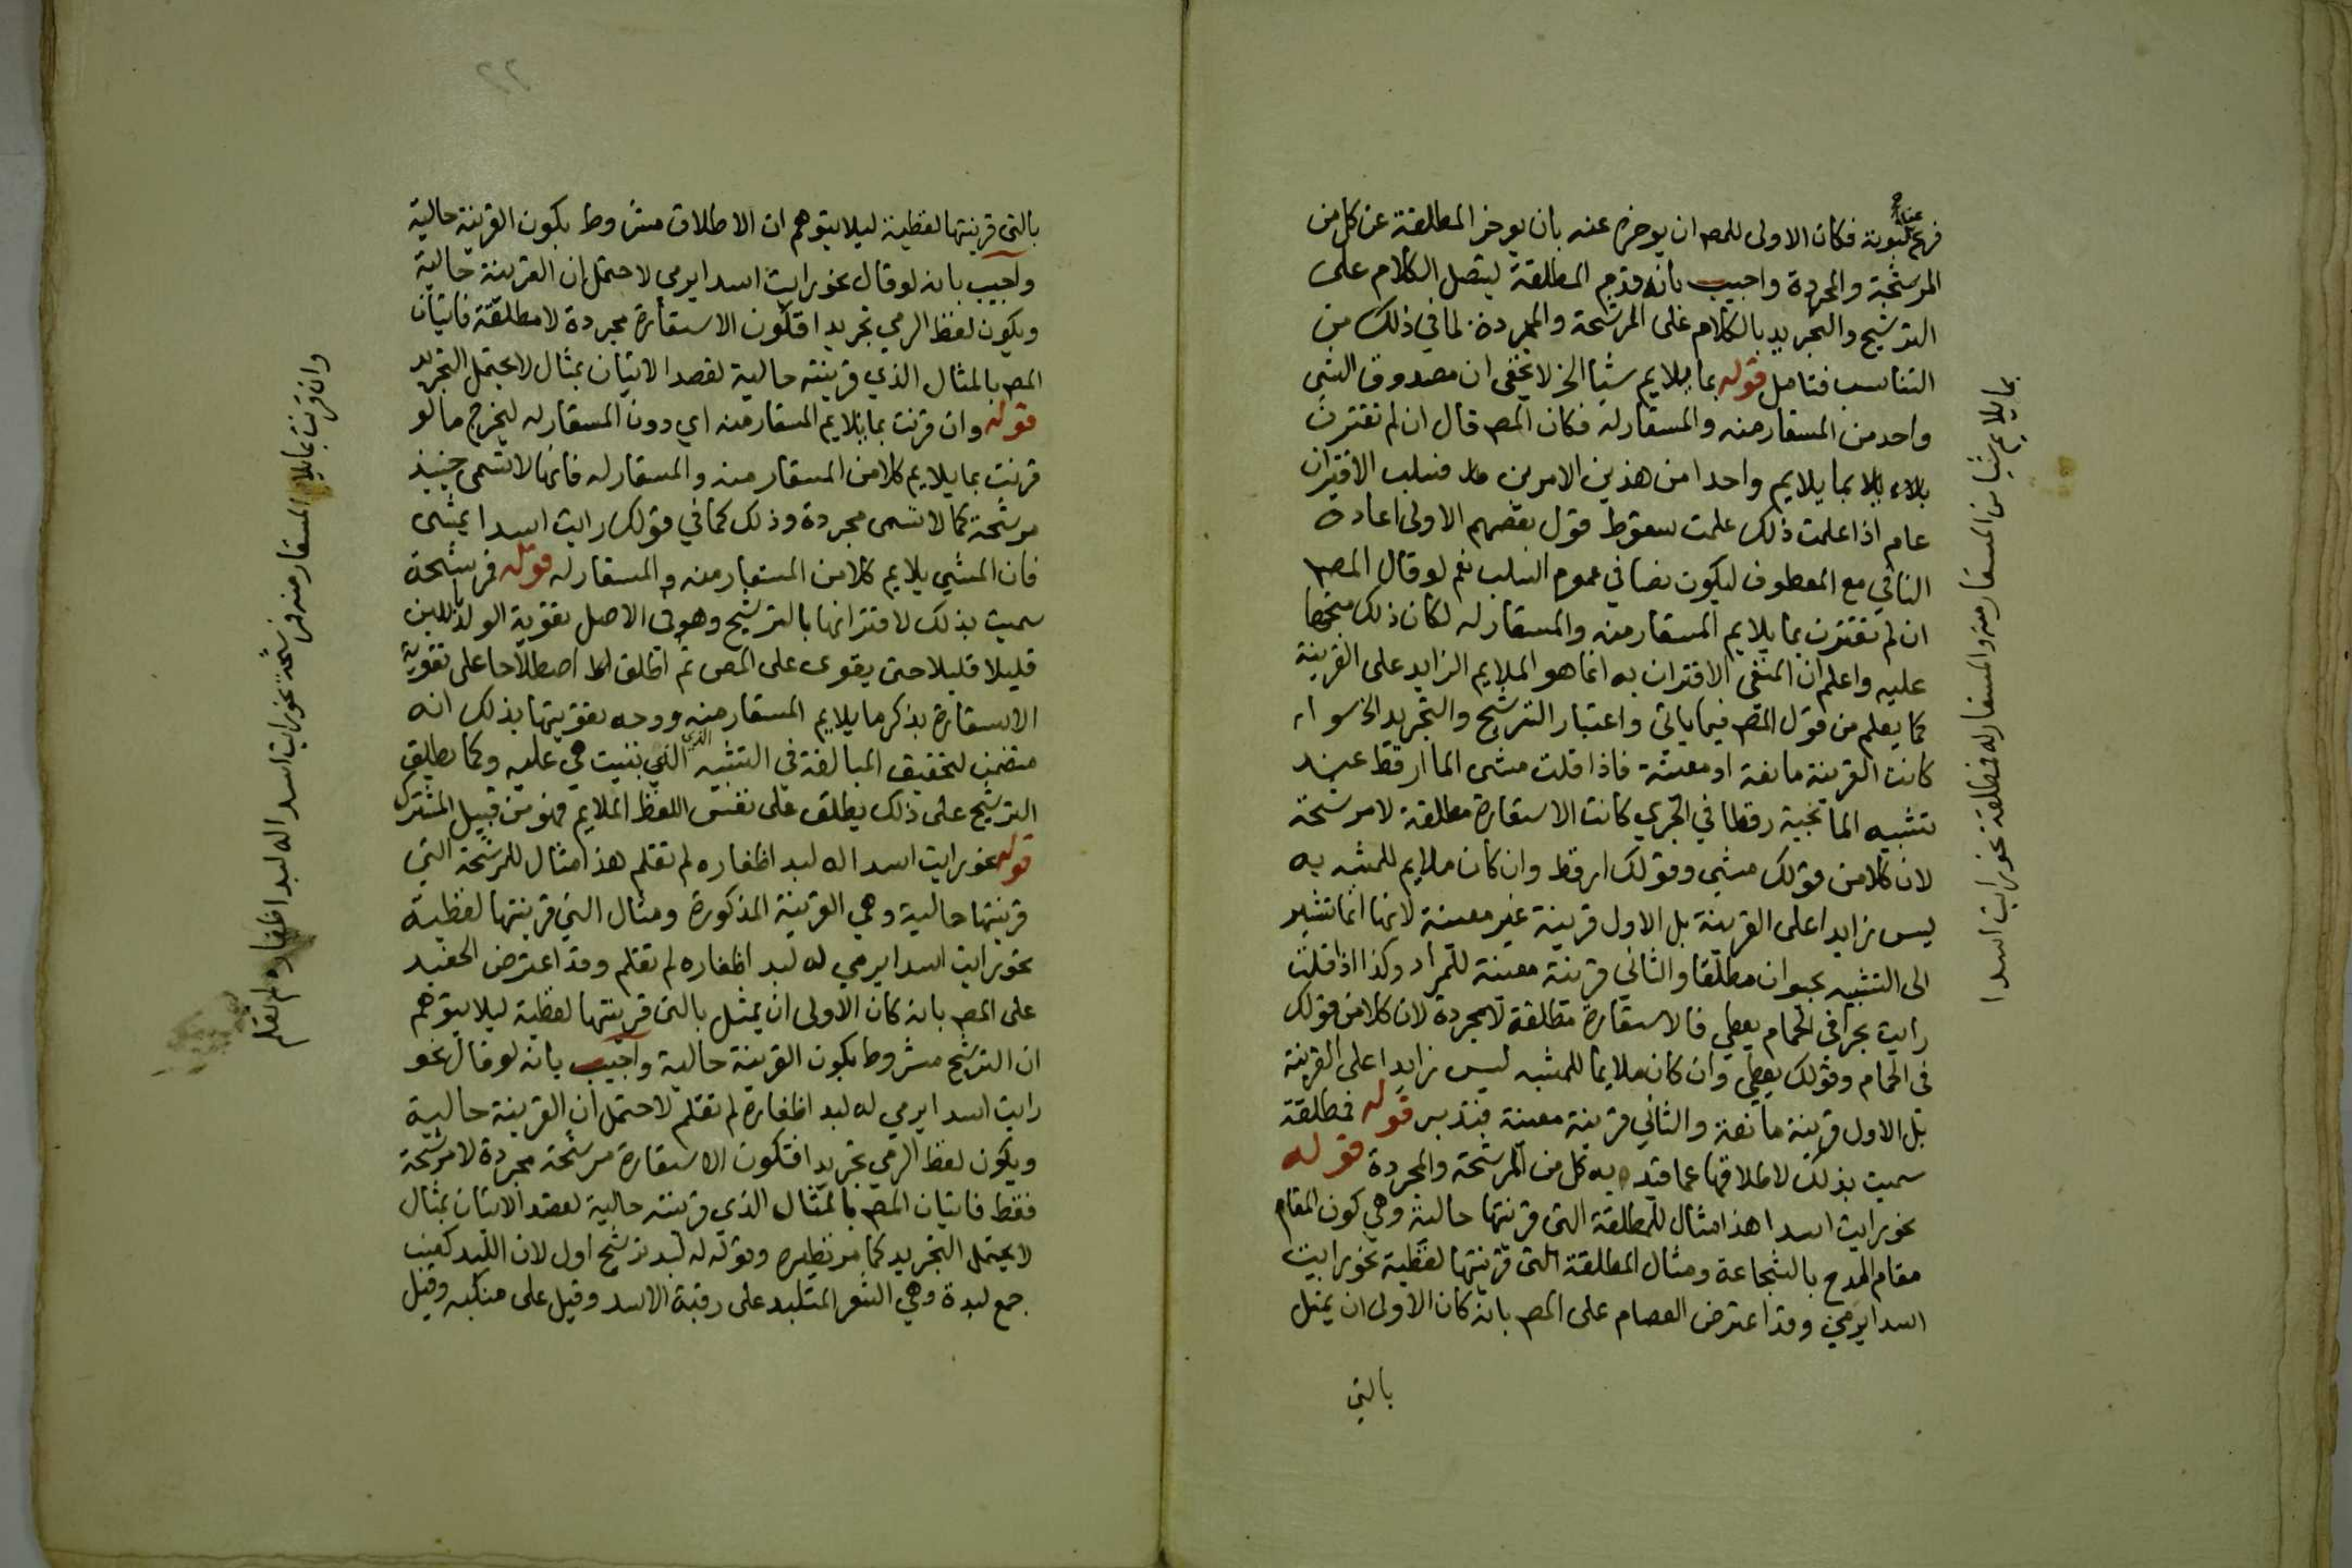 فرع ثبوته فكان الاولى للمص ان يوخره عنه بان يوخر المطلقة عن كل من
المرشحة والمجردة واجيب بانه قدم المطلقة ليتصل الكلام على
الترشيح والتجريد بالكلام على المرشحة والمجردة لما في ذلك من
التناسب فتامل قوله بما يلايم شيا الخ لا يخفى ان مصدوق الشي
واحد من المستعار منه والمستعار له فكان المص قال ان لم تقترن
بلا بما يلايم واحدا من هذين الامرين فسلب الاقتران
عام اذا علمت ذلك علمت سقوط قول بعضهم الاولى اعادة
النافي مع المعطوف ليكون نصا في عموم السلب نعم لو قال المص
ان لم تقترن بما يلايم المستعار منه والمستعار له لكان ذلك متجها
عليه واعلم ان المنفى الاقتران به انما هو الملايم الزايد على القرينة
كما يعلم من قول المص فيما ياتي واعتبار الترشيح والتجريد الخ سواء
كانت القرينة مانعة او معينة فاذا قلت مشى الما ارقط عند
تشبيه الما بحية رقطا في الجري كانت الاستعارة مطلقة لا مرشحة
لان كلا من قولك مشي وقولك ارقط وان كان ملايم للمشبه به
ليس زايدا على القرينة بل الاول قرينة غير معينة لانها انما تشير
الى التشبيه بحيوان مطلقا والثاني قرينة معينة للمراد وكذا اذا قلت
رايت بحرا في الحمام يعطي فالاستعارة مطلقة لا مجردة لان كلا من قولك
في الحمام وقولك يعطي وان كان ملايما للمشبه ليس زايدا على القرينة
بل الاول قرينة مانعة والثاني قرينة معينة فتدبر قوله فمطلقة
سميت بذلك لاطلاقها عما قيد به كل من المرشحة والمجردة قوله
نحو رايت اسدا هذا مثال للمطلقة التى قرينتها حالية وهي كون المقام
مقام المدح بالشجاعة ومثال المطلقة التى قرينتها لفظية نحو رايت
اسدا يرمي وقد اعترض العصام على المص بانه كان الاولى ان يمثل
بالتي
بما يلايم شيا من المستعار منه والمستعار له فمطلقة نحو رايت اسدا
٢٢
بالتى قرينتها لفظية ليلا يتوهم ان الاطلاق مشروط بكون القرينة حالية
واجيب بانه لو قال نحو رايت اسدا يرمي لاحتمل ان القرينة حالية
ويكون لفظ الرمي تجريدا فتكون الاستعارة مجردة لا مطلقة فاتيان
المص بالمثال الذي قرينته حالية لقصد الاتيان بمثال لا يحتمل التجريد
قوله وان قرنت بما يلايم المستعار منه اي دون المستعار له ليخرج ما لو
قرنت بما يلايم كلا من المستعار منه والمستعار له فانها لا تسمى حينيذ
مرشحة كما لا تسمى مجردة وذلك كما في قولك رايت اسدا يمشي
فان المشي يلايم كلا من المستعار منه والمستعار له قوله فمرشحة
سميت بذلك لاقترانها بالترشيح وهو في الاصل تقوية الولد باللبن
قليلا قليلا حتى يقوى على المص ثم اطلق اصطلاحا على تقوية
الاستعارة بذكر ما يلايم المستعار منه ووجه تقويتها بذلك انه
متضمن لتحقيق المبالغة في التشبيه الذي بنيت هي عليه وكما يطلق
الترشيح على ذلك يطلق على نفس اللفظ الملايم فهو من قبيل المشترك
قوله نحو رايت اسدا له لبد اظفاره لم تقلم هذا مثال للمرشحة التي
قرينتها حالية وهي القرينة المذكورة ومثال التي قرينتها لفظية
نحو رايت اسدا يرمي له لبد اظفاره لم تقلم وقد اعترض الحفيد
على المص بانه كان الاولى ان يمثل بالتى قرينتها لفظية ليلا يتوهم
ان الترشيح مشروط بكون القرينة حالية واجيب بانه لو قال نحو
رايت اسدا يرمي له لبد اظفارة لم تقلم لاحتمل ان القرينة حالية
ويكون لفظ الرمي تجريدا فتكون الاستعارة مرشحة مجردة لا مرشحة
فقط فاتيان المص بالمثال الذي قرينته حالية لقصد الاتيان بمثال
لا يحتمل التجريد كما مر نظيره وقوله له لبد ترشيح اول لان اللبد كعنب
جمع لبدة وهي الشعر المتلبد على رقبة الاسد وقيل على منكبه وقيل
وان قرنت بما يلايم المستعار منه فمرشحة نحو رايت اسدا له لبد اظفاره لم تقلم